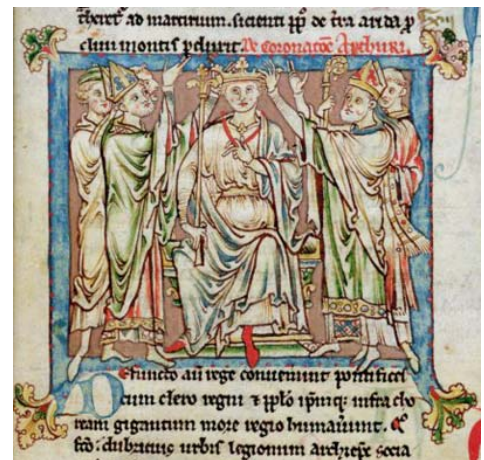 cheret ad maritimum. sicienti ppo de tra arida p
cliuum montis pduxit. De coronacōe Arthuri.
Defuncto aū rege conuenerunt pontifices
cum clero regni ⁊ pplo ipmq; infra cho
ream gigantium more regio humauerunt.
fco. dubricius urbis legionum archiepc socia